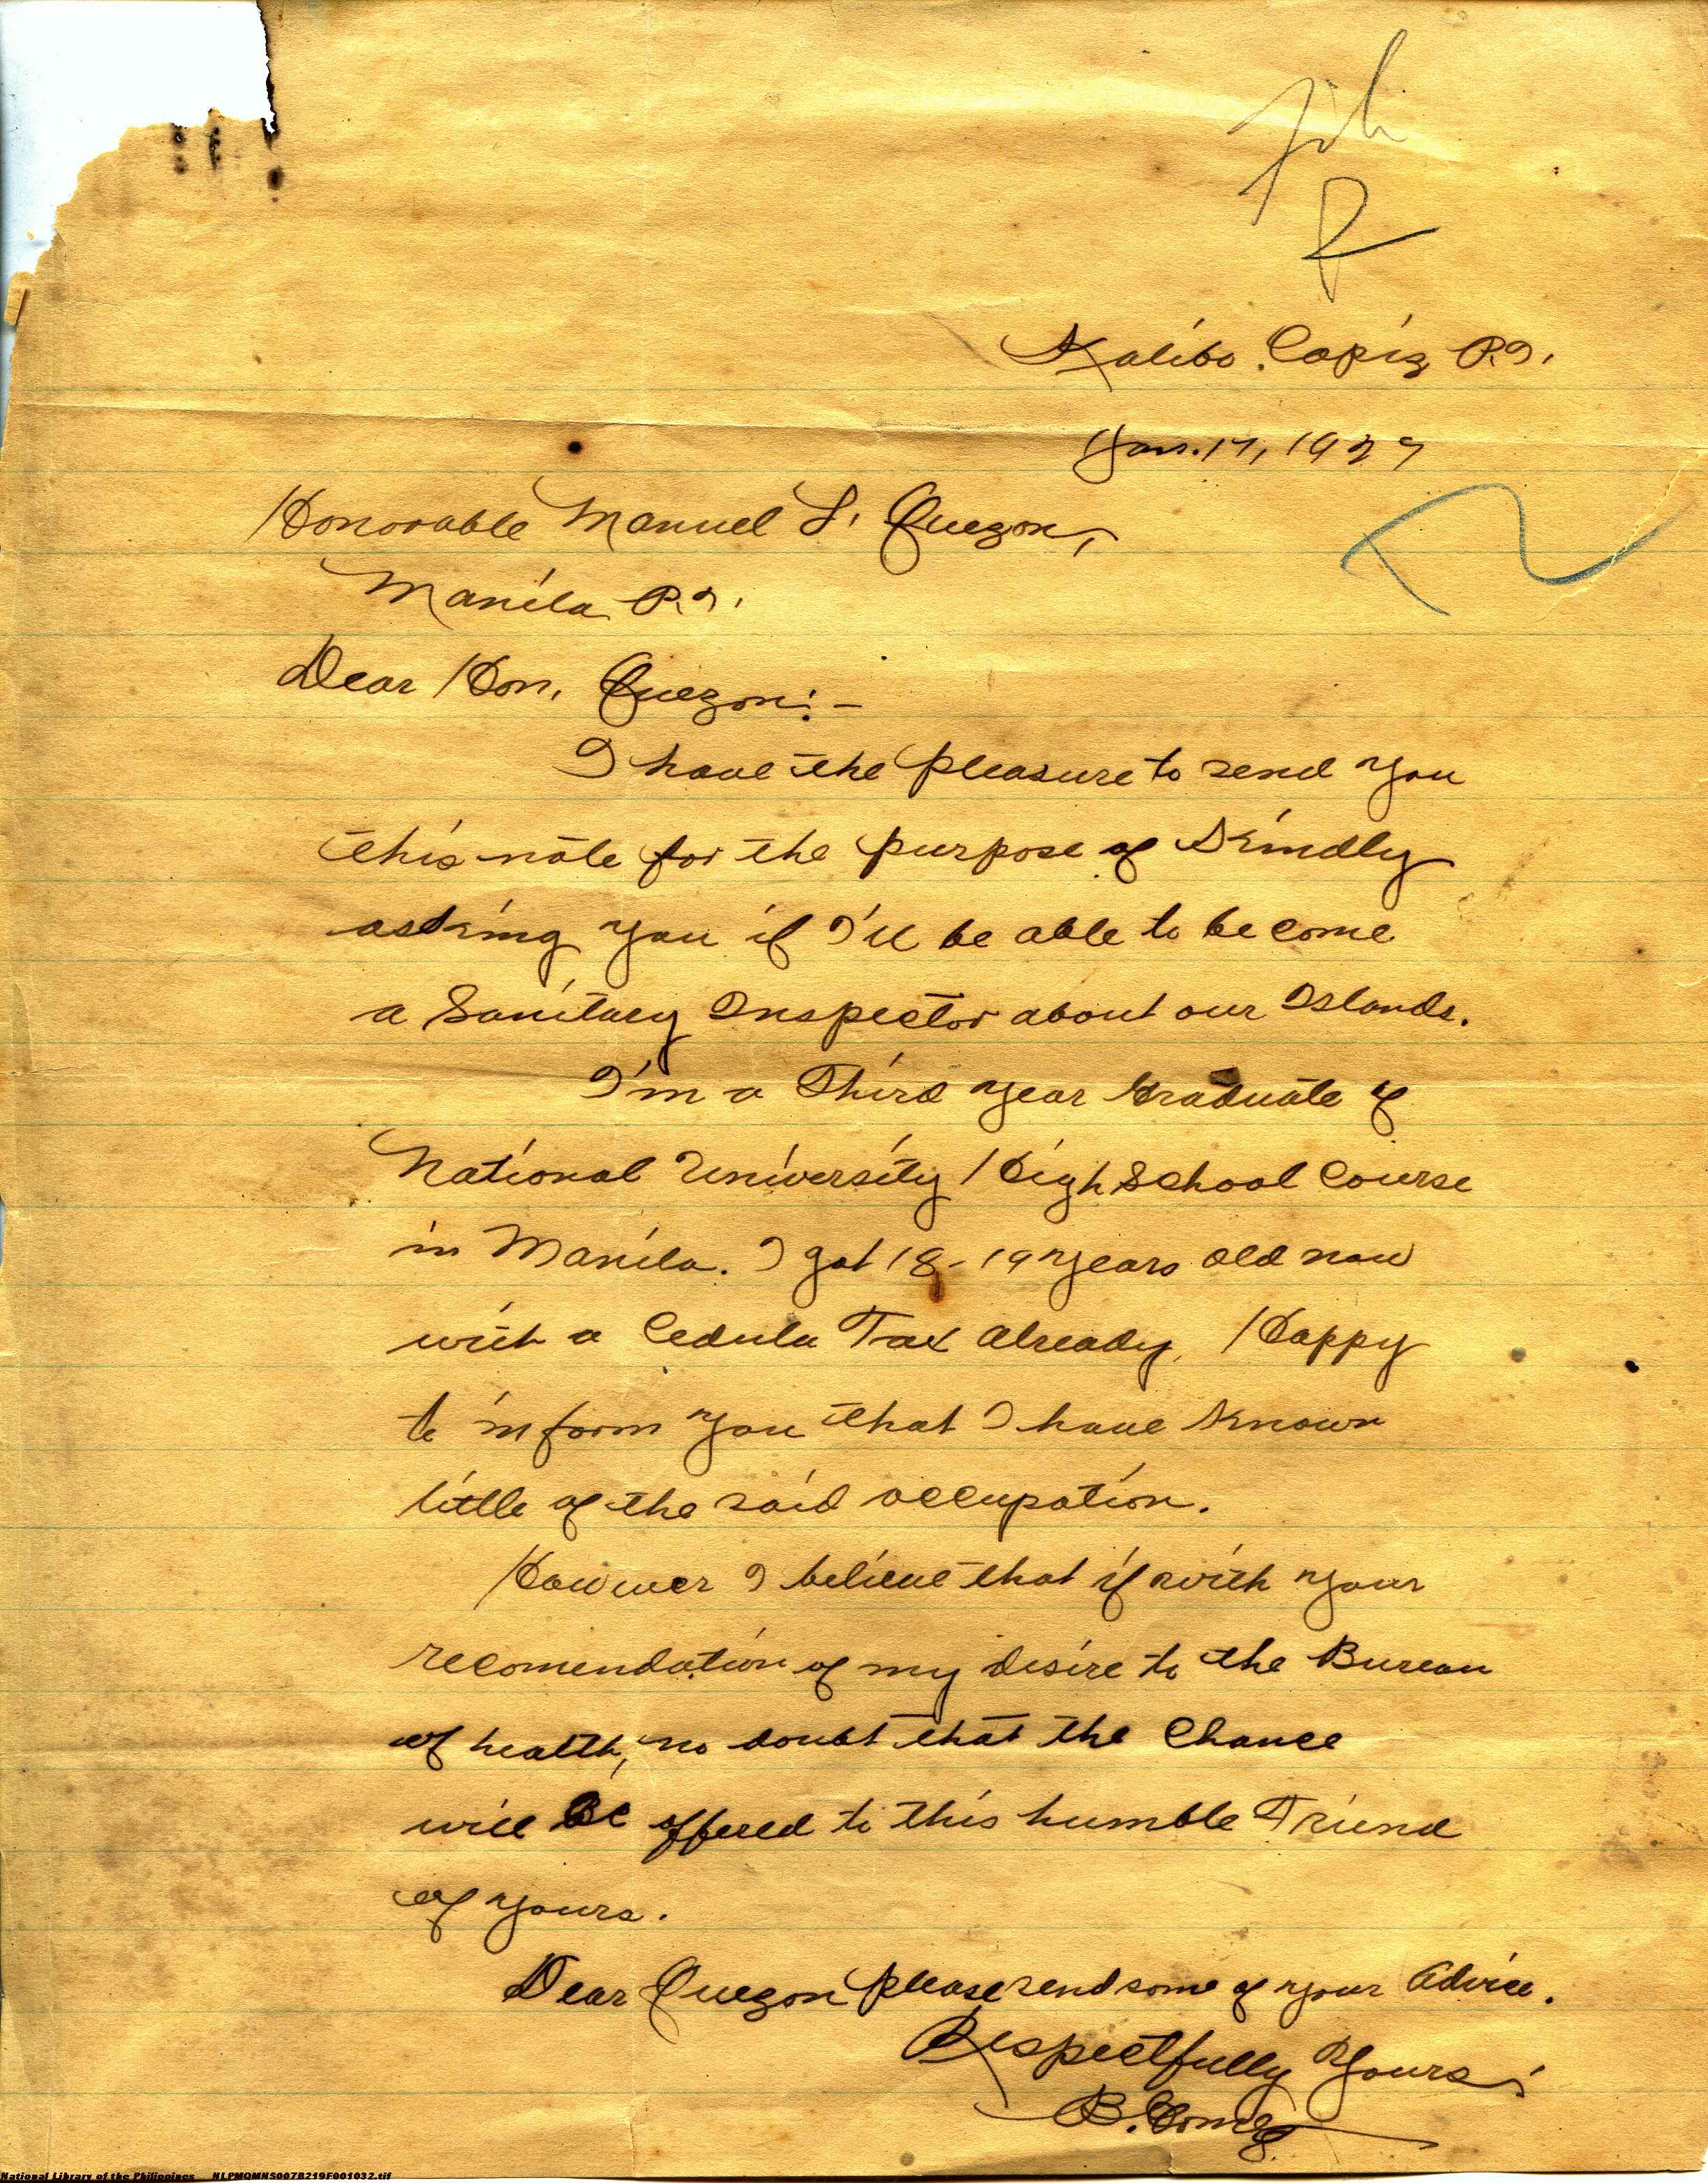 Kalibo. Capiz P.I.
Jan. 17, 1927
Honorable Manuel L. Quezon,
Manila P.I.
Dear Hon. Quezon:-
I have the pleasure to send you
this note for the purpose of kindly
asking you if I'll be able to become
a Sanitary Inspector about our Islands.
I'm a Third year Graduate of
National University High School Course
in Manila. I got 18-19 years old now
with a Cedula Tax already. Happy
to inform you that I have known
little of the said occupation.
However I believe that if with your
recomendation of my desire to the Bureau
of health, no doubt that the Chance
will Be offered to this humble Friend
of yours.
Dear Quezon please send some of your Advice.
Respectfully Yours,
B. Gomez
National Library of the Philippines NLPMQMNS007B219F001032.tif